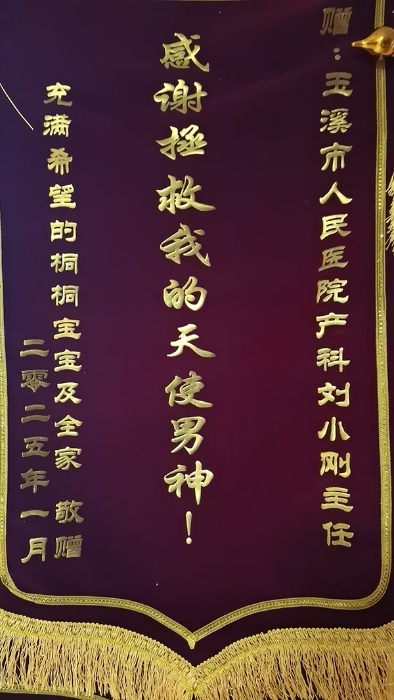 赠：玉溪市人民医院产科刘小刚主任
感谢拯救我的天使男神！
充满希望的桐桐宝宝及全家 敬赠
二零二五年一月